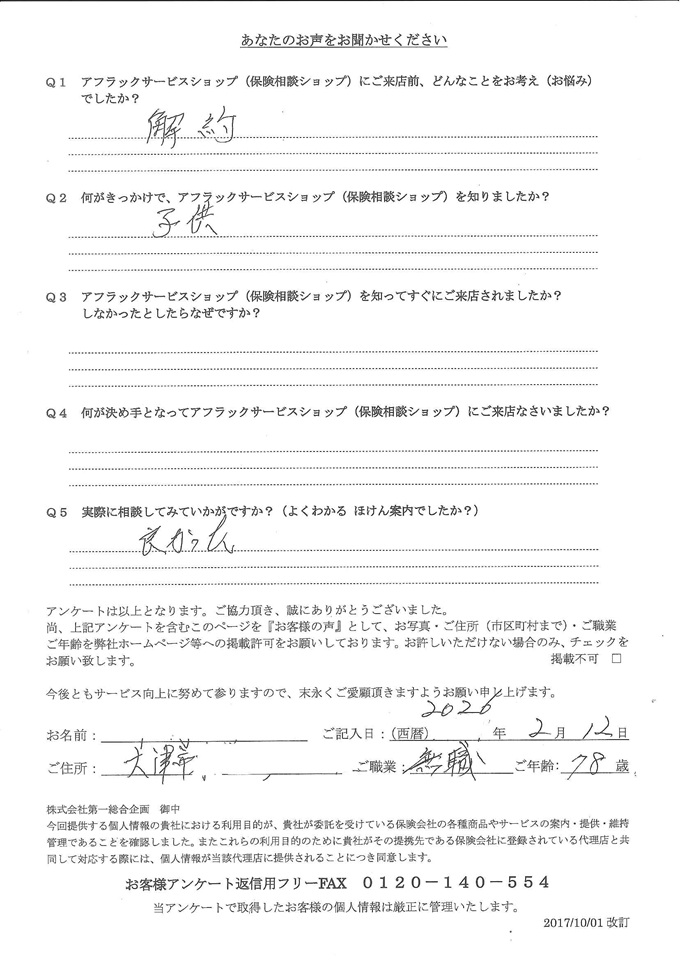 あなたのお声をお聞かせください
Q1 アフラックサービスショップ（保険相談ショップ）にご来店前、どんなことをお考え（お悩み）
でしたか？
解約
Q2 何がきっかけで、アフラックサービスショップ（保険相談ショップ）を知りましたか？
子供
Q3 アフラックサービスショップ（保険相談ショップ）を知ってすぐにご来店されましたか？
しなかったとしたらなぜですか？
Q4 何が決め手となってアフラックサービスショップ（保険相談ショップ）にご来店なさいましたか？
Q5 実際に相談してみていかがですか？（よくわかる ほけん案内でしたか？）
良かった
アンケートは以上となります。ご協力頂き、誠にありがとうございました。
尚、上記アンケートを含むこのページを『お客様の声』として、お写真・ご住所（市区町村まで）・ご職業
ご年齢を弊社ホームページ等への掲載許可をお願いしております。お許しいただけない場合のみ、チェックを
お願い致します。 掲載不可 □
今後ともサービス向上に努めて参りますので、末永くご愛顧頂きますようお願い申し上げます。
お名前： ご記入日：（西暦） 2026 年 2 月 12 日
ご住所： 大津市 ご職業：無職 ご年齢：78 歳
株式会社第一総合企画 御中
今回提供する個人情報の貴社における利用目的が、貴社が委託を受けている保険会社の各種商品やサービスの案内・提供・維持
管理であることを確認しました。またこれらの利用目的のために貴社がその提携先である保険会社に登録されている代理店と共
同して対応する際には、個人情報が当該代理店に提供されることにつき同意します。
お客様アンケート返信用フリーFAX ０１２０－１４０－５５４
当アンケートで取得したお客様の個人情報は厳正に管理いたします。
2017/10/01 改訂